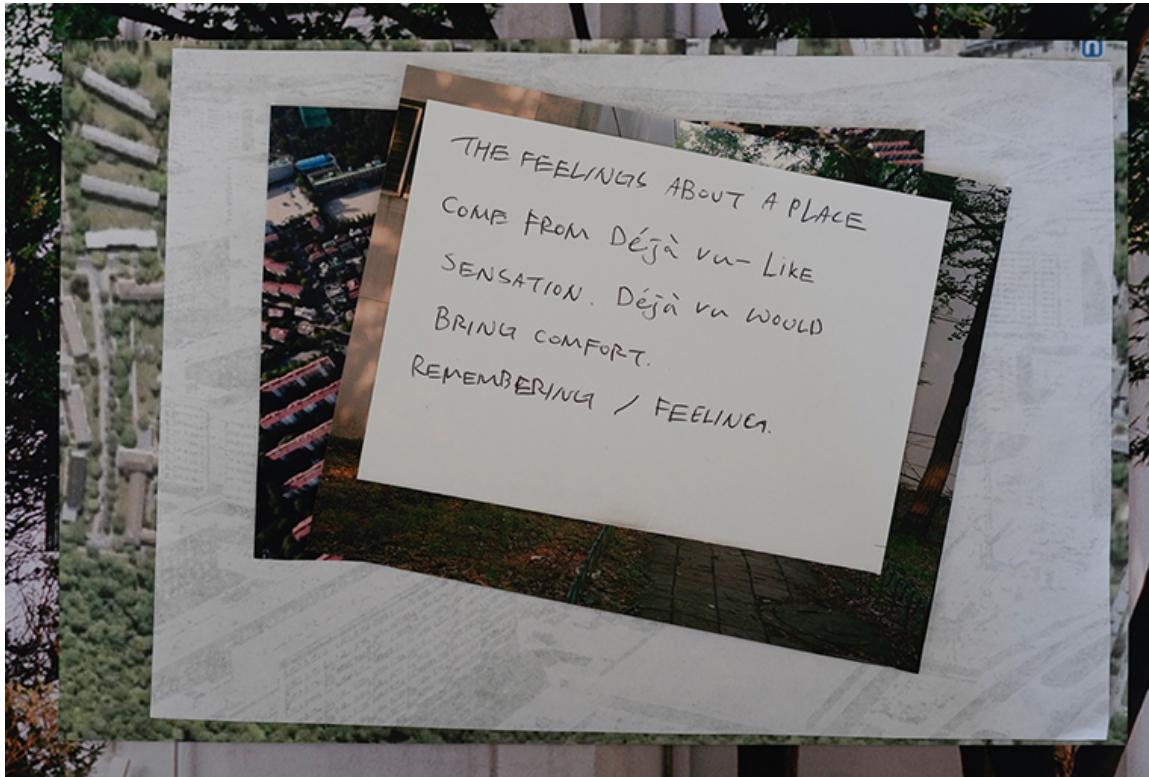 THE FEELINGS ABOUT A PLACE
COME FROM Déjà vu- LIKE
SENSATION. Déjà vu WOULD
BRING COMFORT.
REMEMBERING / FEELING.